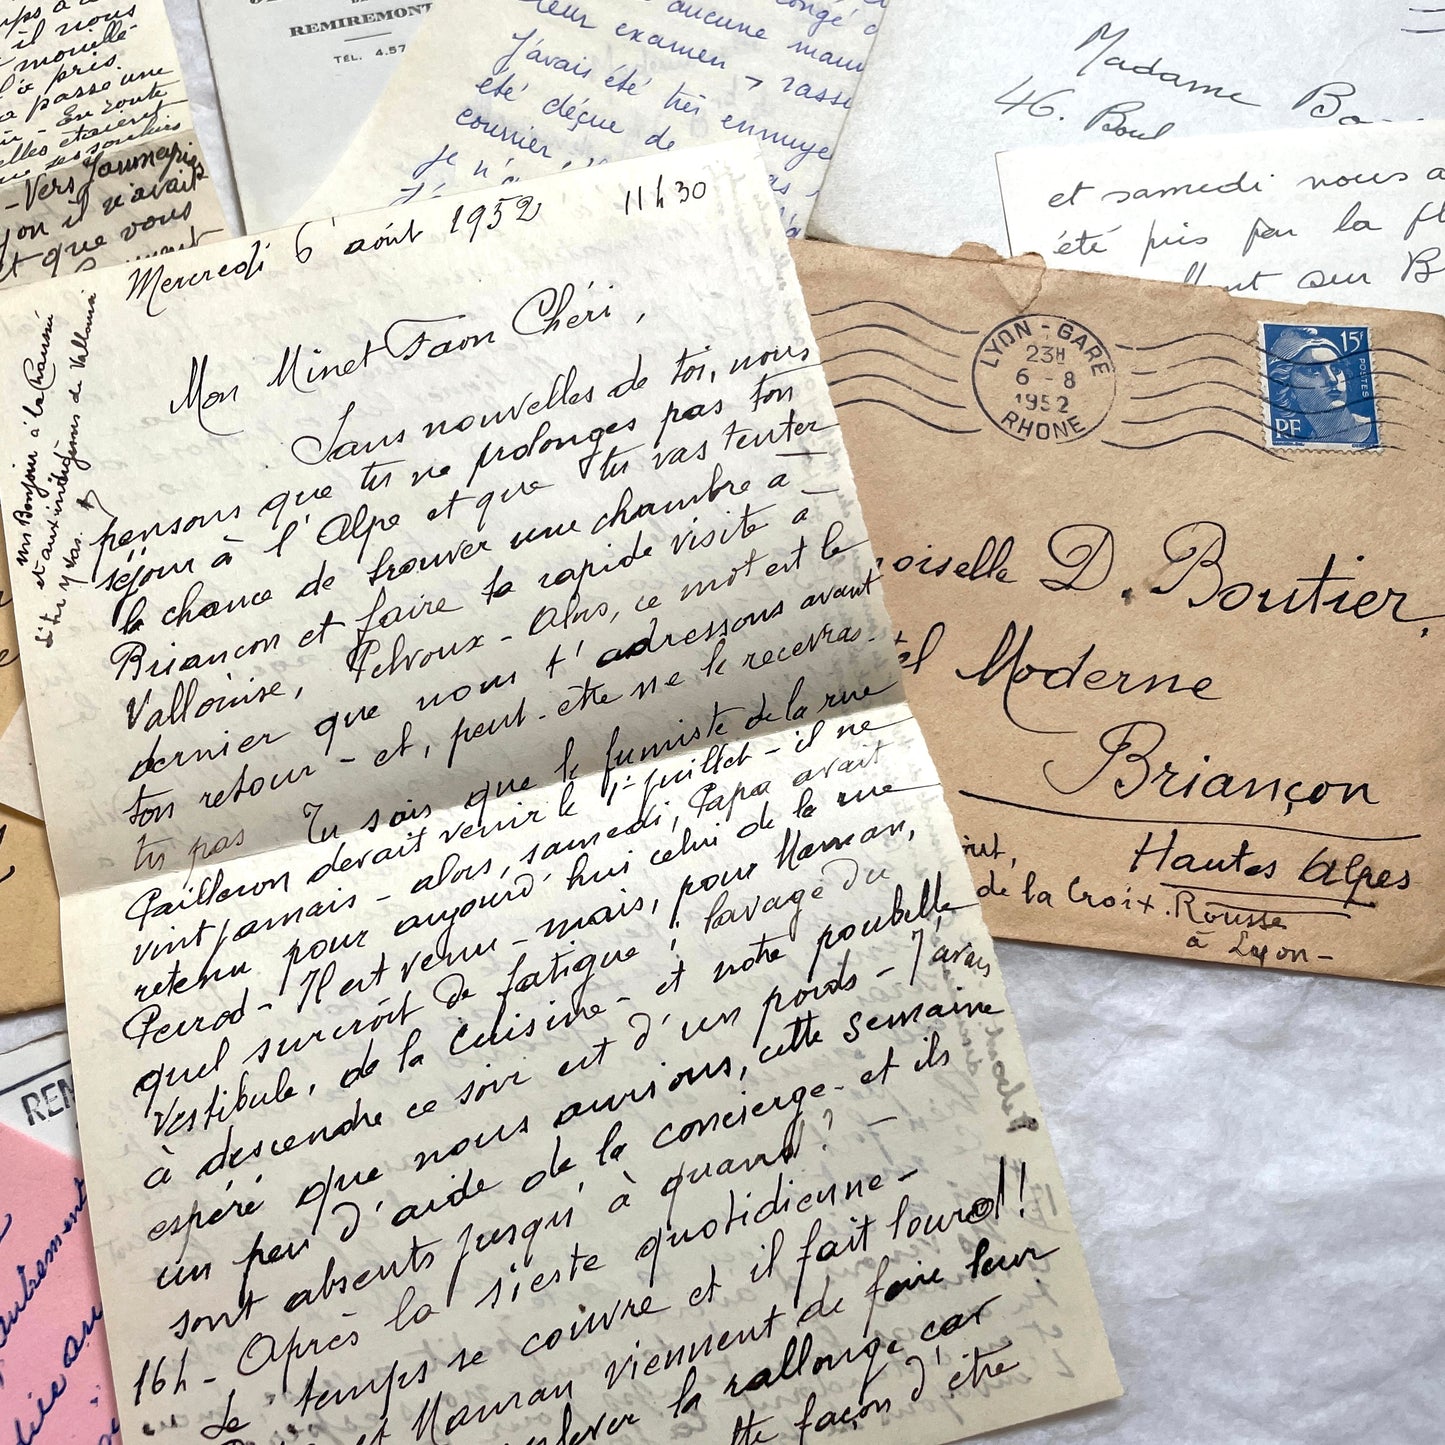 il nous
mouillé
pris
a passe une
En route
elles étaient
- Vers
il n'avait
et que vous
REMIREMONT
TÉL. 4.57
congé
aucune
leur examen
J'avais été très ennuyé
été déçue de
courrier
je n'
Madame
46. Boul
et samedi nous a
été pris par la
sur B
Mercredi 6 août 1952 11h30
Mon Minet Faon Chéri,
Sans nouvelles de toi, nous
pensons que tu ne prolonges pas ton
séjour à l'Alpe et que tu vas tenter
la chance de trouver une chambre à
Briançon et faire ta rapide visite à
Vallouise, Pelvoux - Alors, ce mot est le
dernier que nous t'adressons avant
ton retour - et, peut-être ne le recevras-
tu pas Tu sais que le fumiste de la rue
Pailleron devait venir le 1er juillet - il ne
vint jamais - alors, samedi, Papa avait
retenu pour aujourd'hui celui de la rue
Perrod - Il est venu - mais, pour Maman,
quel surcroît de fatigue ! lavage du
vestibule, de la cuisine - et notre poubelle
à descendre ce soir est d'un poids - J'avais
espéré que nous aurions, cette semaine
un peu d'aide de la concierge - et ils
sont absents jusqu'à quand ? -
16h - Après la sieste quotidienne -
Le temps se couvre et il fait lourd !!
et Maman viennent de faire leur
la rallonge car
façon d'être
un Bonjour à la
et aux indigènes de Vallouise
si tu y vas.
LYON-GARE
23H
6-8
1952
RHONE
15F
POSTES
RF
oiselle D. Boutier.
el Moderne
Briançon
Hautes Alpes
de la Croix-Rousse
à Lyon-
REM
autrement